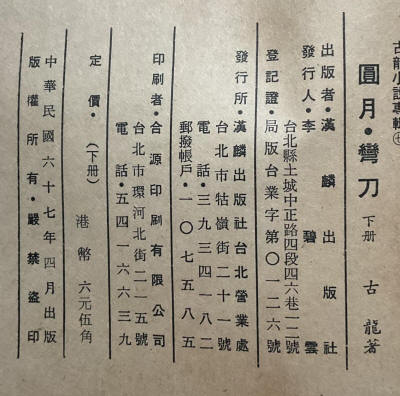 古龍小說專輯⑰
圓月·彎刀 下册 古龍著
出版者·漢麟出版社
發行人·李碧雲
台北縣土城中正路四段四六巷二二號
登記證·局版台業字第〇一二六號
發行所·漢麟出版社台北營業處
台北市牯嶺街二十一號
電話·三九三四一八二
郵撥帳戶·一〇七五八五
印刷者·合源印刷有限公司
台北市環河北街二一五號
電話·五四一六六三九
定價·(下册) 港幣六元伍角
中華民國六十七年四月出版
版權所有·嚴禁盜印